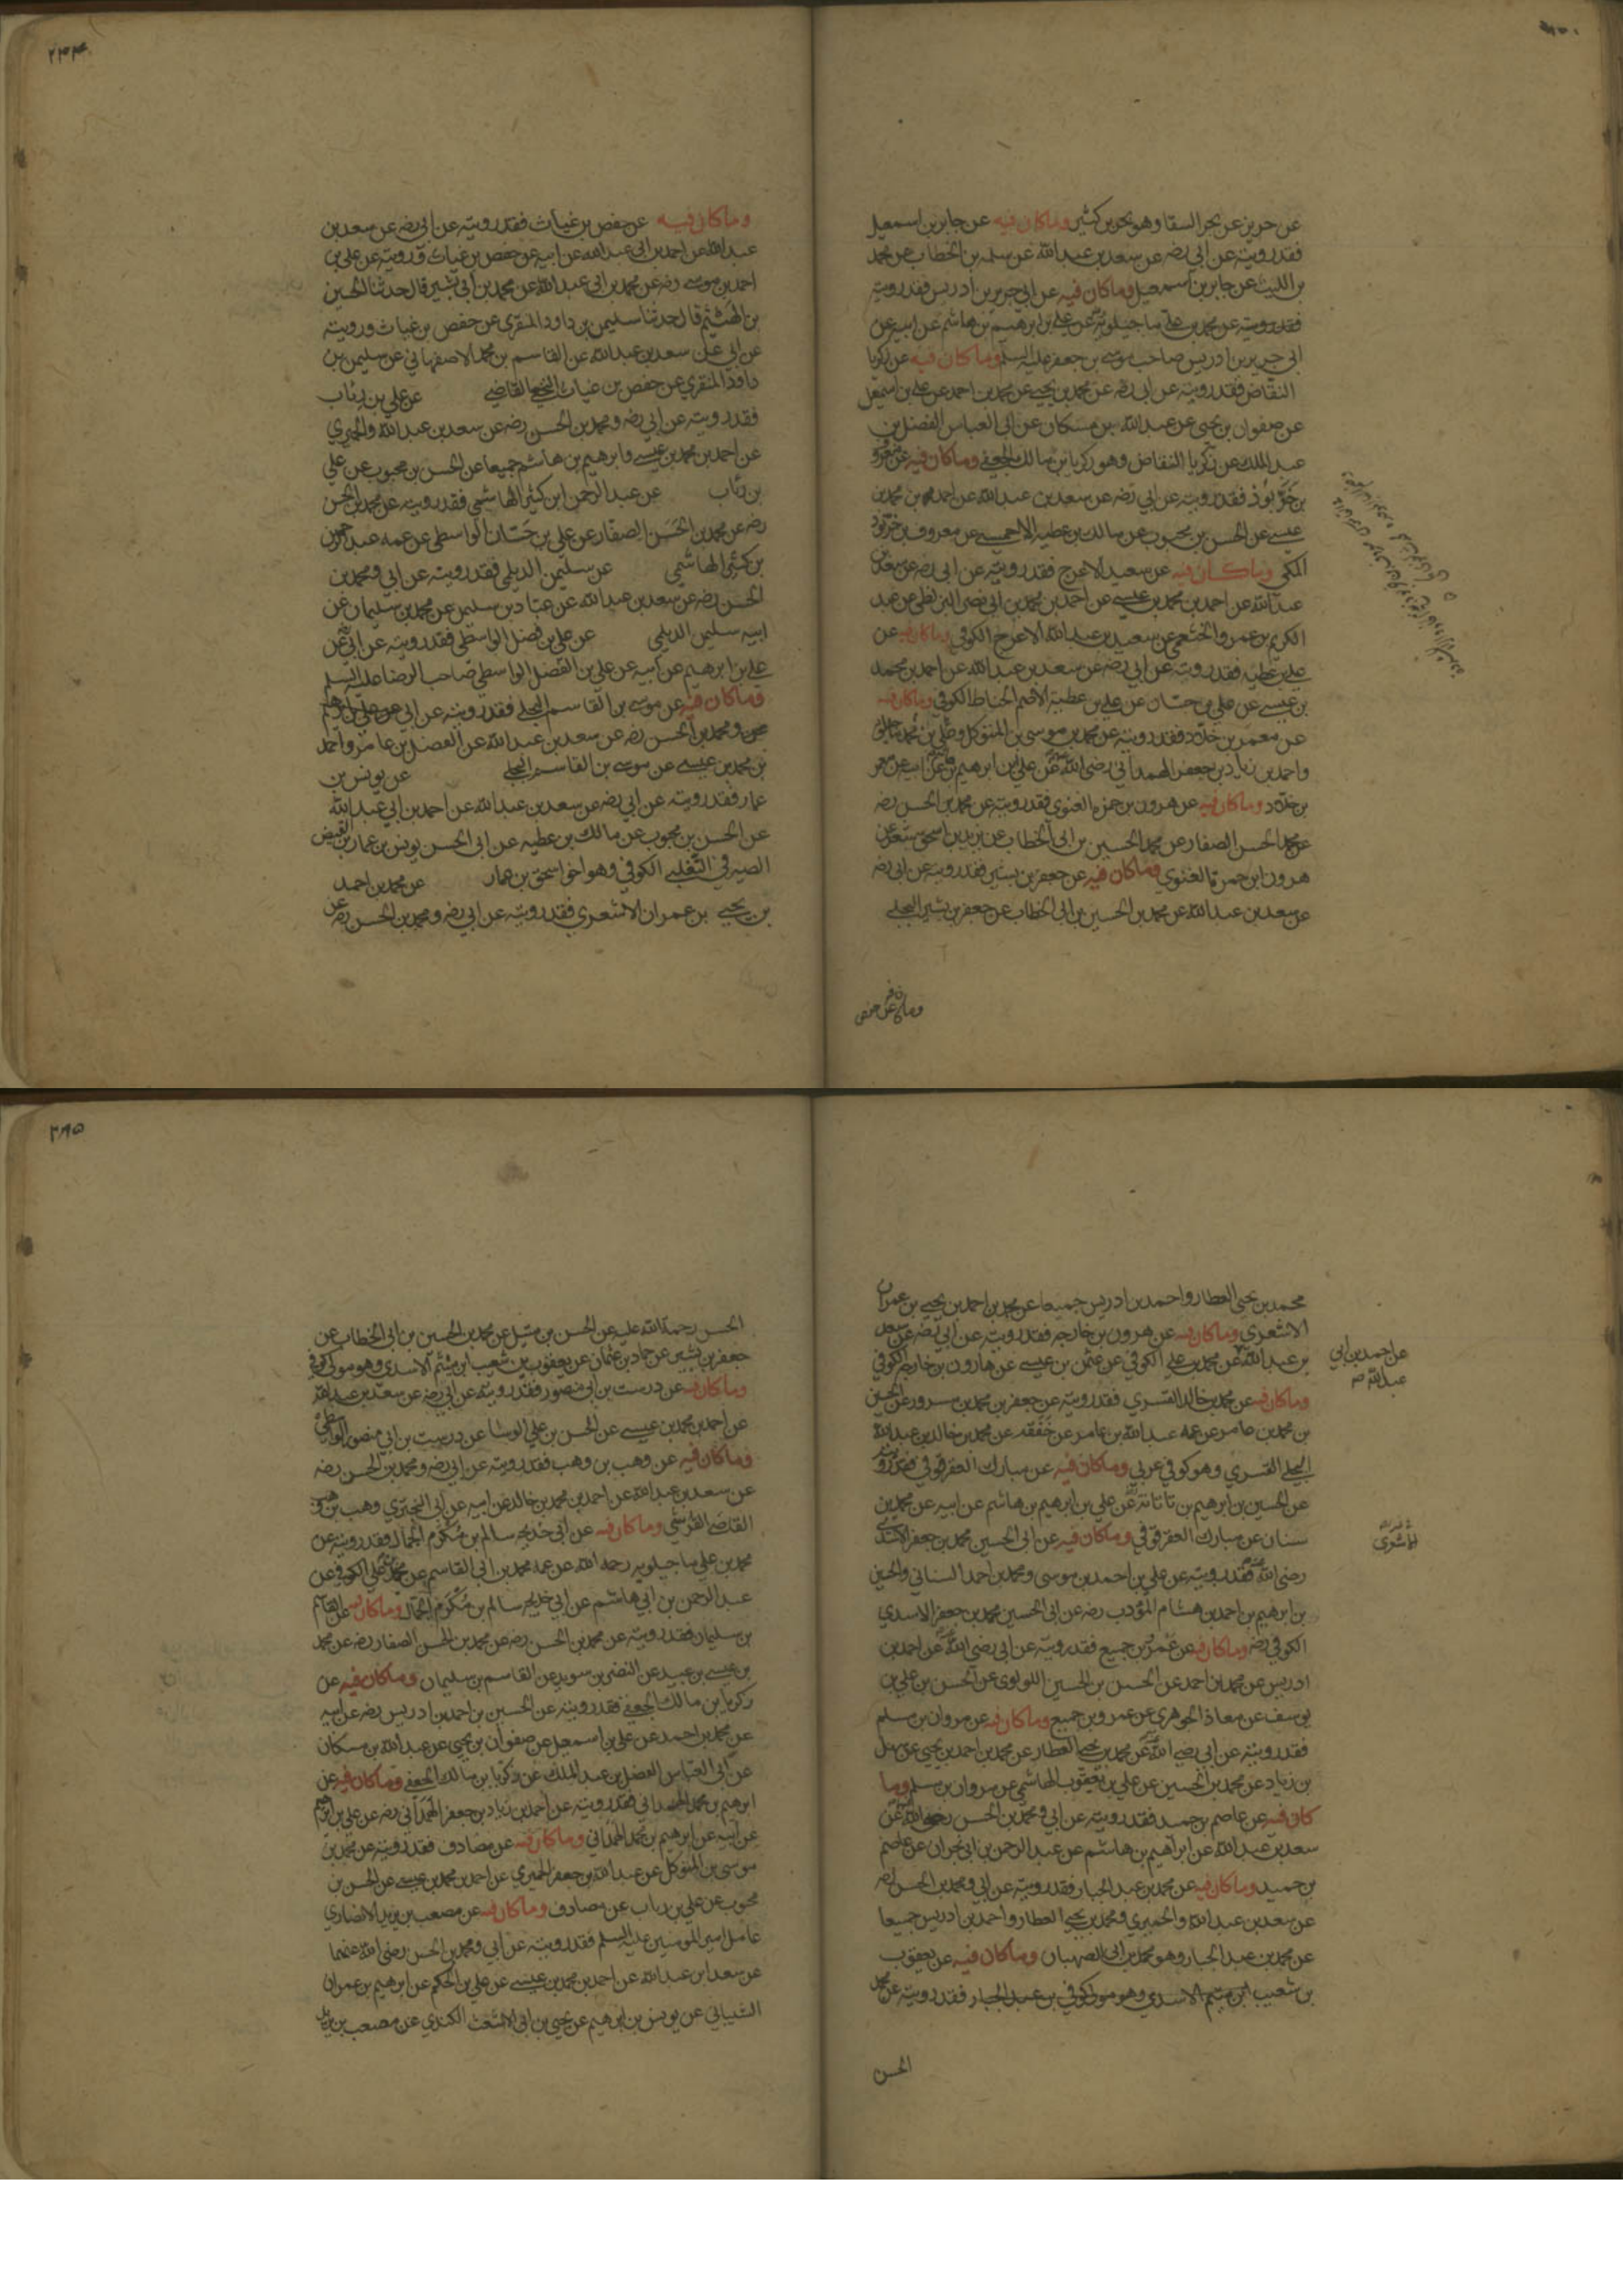 عن حريز عن بحر السقا وهو بحر بن كثير وماكان فيه عن جابر بن اسمعيل
فقد رويته عن ابي رضه عن سعد بن عبد الله عن سلمه بن الخطاب عن محمد
بن الليث عن جابر بن اسمعيل وماكان فيه عن ابي جرير بن ادريس فقد رويته
فقد رويته عن محمد بن علي ماجيلويه عن علي بن ابرهيم بن هاشم عن ابيه عن
ابي جرير بن ادريس صاحب موسى بن جعفر عليه السلم وماكان فيه عن زكريا
النقاض فقد رويته عن ابي رضه عن محمد بن يحيى عن محمد بن احمد عن علي بن اسمعيل
عن صفوان بن يحيى عن عبد الله بن مسكان عن ابي العباس الفضل بن
عبد الملك عن زكريا النقاض وهو زكريا بن مالك الجعفي وماكان فيه عن معروف
بن خربوذ فقد رويته عن ابي رضه عن سعد بن عبد الله عن احمد بن محمد بن
عيسى عن الحسن بن محبوب عن مالك بن عطيه الاحمسي عن معروف بن خربوذ
المكي وماكان فيه عن سعيد الاعرج فقد رويته عن ابي رضه عن سعد بن
عبد الله عن احمد بن محمد بن عيسى عن احمد بن محمد بن ابي نصر البزنطي عن عبد
الكريم بن عمرو الخثعمي عن سعيد بن عبد الله الاعرج الكوفي وماكان فيه عن
علي بن عطيه فقد رويته عن ابي رضه عن سعد بن عبد الله عن احمد بن محمد
بن عيسى عن علي بن حسان عن علي بن عطية الاصم الحناط الكوفي وماكان فيه
عن معمر بن خلاد فقد رويته عن محمد بن موسى بن المتوكل وعلي بن محمد ماجيلويه
واحمد بن زياد بن جعفر الهمداني رضي الله عن علي بن ابرهيم بن هاشم عن ابيه عن معمر
بن خلاد وماكان فيه عن هرون بن حمزه الغنوي فقد رويته عن محمد بن الحسن رضه
عن محمد الحسن الصفار عن محمد الحسين بن ابي الخطاب عن يزيد بن اسحق شعر عن
هرون ابن حمزة الغنوي وماكان فيه عن جعفر بن بشير فقد رويته عن ابي رضه
عن سعد بن عبد الله عن محمد بن الحسين بن ابي الخطاب عن جعفر بن بشير البجلي
وماكان فيه عن حفص
٢٤٤
وماكان فيه عن حفص بن غياث فقد رويته عن ابي رضه عن سعد بن
عبد الله عن احمد بن ابي عبد الله عن ابيه عن حفص بن غياث ورويته عن علي بن
احمد بن موسى رضه عن محمد بن ابي عبد الله عن محمد بن ابي بشير قال حدثنا الحسين
بن الهيثم قال حدثنا سليمن بن داود المنقري عن حفص بن غياث ورويته
عن ابي عن سعد بن عبد الله عن القاسم بن محمد الاصفهاني عن سليمن بن
داود المنقري عن حفص بن غياث النخعي القاضي عن علي بن رئاب
فقد رويته عن ابي رضه ومحمد بن الحسن رضه عن سعد بن عبد الله والحميري
عن احمد بن محمد بن عيسى وابرهيم بن هاشم جميعا عن الحسن بن محبوب عن علي
بن رئاب عن عبد الرحمن ابن كثير الهاشمي فقد رويته عن محمد بن الحسن
رضه عن محمد بن الحسن الصفار عن علي بن حسان الواسطي عن عمه عبد الرحمن
بن كثير الهاشمي عن سليمن الديلمي فقد رويته عن ابي ومحمد بن
الحسن رضه عن سعد بن عبد الله عن عباد بن سليمن عن محمد بن سليمان عن
ابيه سليمن الديلمي عن علي بن فضل الواسطي فقد رويته عن ابي عن
علي بن ابرهيم عن ابيه عن علي بن الفضل الواسطي صاحب الرضا عليه السلم
وماكان فيه عن موسى بن القاسم البجلي فقد رويته عن ابي
ومحمد بن الحسن رضه عن سعد بن عبد الله عن الفضل بن عامر واحمد
بن محمد بن عيسى عن موسى بن القاسم البجلي عن يونس بن
عمار فقد رويته عن ابي رضه عن سعد بن عبد الله عن احمد بن ابي عبد الله
عن الحسن بن محبوب عن مالك بن عطيه عن ابي الحسن يونس بن عمار بن الفيض
الصيرفي التغلبي الكوفي وهو اخو اسحق بن عمار عن محمد بن احمد
بن يحيى بن عمران الاشعري فقد رويته عن ابي رضه ومحمد بن الحسن رضه عن
محمد بن يحيى العطار واحمد بن ادريس جميعا عن محمد بن احمد بن يحيى بن عمران
الاشعري وماكان فيه عن هرون بن خارجه فقد رويته عن ابي رضه عن سعد
بن عبد الله عن محمد بن علي الكوفي عن عثمن بن عيسى عن هارون بن خارجه الكوفي
عن احمد بن ابي
عبد الله صح
وماكان فيه عن محمد بن خالد القسري فقد رويته عن جعفر بن محمد بن مسرور عن الحسين
بن محمد بن عامر عن عمه عبد الله بن عامر عن حفقه عن محمد بن خالد بن عبد الله
البجلي القسري وهو كوفي عربي وماكان فيه عن مبارك العقرقوفي فقد رويته
عن الحسين بن ابرهيم بن تاتانه عن علي بن ابرهيم بن هاشم عن ابيه عن محمد بن
سنان عن مبارك العقرقوفي وماكان فيه عن ابي الحسين محمد بن جعفر الاسدي
رضي الله فقد رويته عن علي بن احمد بن موسى ومحمد بن احمد السناني والحسين
بن ابرهيم بن احمد بن هشام المؤدب رضه عن ابي الحسين محمد بن جعفر الاسدي
الكوفي رضه وماكان فيه عن عمرو بن جميع فقد رويته عن ابي رضي الله عن احمد بن
ادريس عن محمد بن احمد عن الحسن بن الحسين اللولوي عن الحسن بن علي بن
يوسف عن معاذ الجوهري عن عمرو بن جميع وماكان فيه عن مروان بن مسلم
فقد رويته عن ابي رضي الله عن محمد بن يحيى العطار عن محمد بن احمد بن يحيى عن سهل
بن زياد عن محمد بن الحسين عن علي بن يعقوب الهاشمي عن مروان بن مسلم وما
كان فيه عن عاصم بن حميد فقد رويته عن ابي ومحمد بن الحسن رضي الله عن
سعد بن عبد الله عن ابراهيم بن هاشم عن عبد الرحمن بن ابي نجران عن عاصم
بن حميد وماكان فيه عن محمد بن عبد الجبار فقد رويته عن ابي ومحمد بن الحسن رضه
عن سعد بن عبد الله والحميري ومحمد بن يحيى العطار واحمد بن ادريس جميعا
عن محمد بن عبد الجبار وهو محمد بن ابي الصهبان وماكان فيه عن يعقوب
بن شعيب ابن ميثم الاسدي وهو مولى كوفي بن عبد الجبار فقد رويته عن محمد
الحسن
الحسن رحمة الله عليه عن الحسن بن متيل عن محمد بن الحسين بن ابي الخطاب عن
جعفر بن بشير عن حماد بن عثمان عن يعقوب بن شعيب ابن ميثم الاسدي وهو مولى كوفي
وماكان فيه عن درست بن ابي منصور فقد رويته عن ابي رضه عن سعد بن عبد الله
عن احمد بن محمد بن عيسى عن الحسن بن علي الوشا عن درست بن ابي منصور الواسطي
وماكان فيه عن وهب بن وهب فقد رويته عن ابي رضه ومحمد بن الحسن رضه
عن سعد بن عبد الله عن احمد بن محمد بن خالد عن ابيه عن ابي البختري وهب بن وهب
القاضي القرشي وماكان فيه عن ابي خديجه سالم بن مكرم الجمال فقد رويته عن
محمد بن علي ماجيلويه رحمه الله عن عمه محمد بن ابي القاسم عن محمد بن علي الكوفي عن
عبد الرحمن بن ابي هاشم عن ابي خديجه سالم بن مكرم الجمال وماكان فيه عن القاسم
بن سليمان فقد رويته عن محمد بن الحسن رضه عن محمد بن الحسن الصفار رضه عن محمد
بن عيسى بن عبيد عن النضر بن سويد عن القاسم بن سليمان وماكان فيه عن
زكريا بن مالك الجعفي فقد رويته عن الحسين بن احمد بن ادريس رضه عن ابيه
عن محمد بن احمد عن علي بن اسمعيل عن صفوان بن يحيى عن عبد الله بن مسكان
عن ابي العباس الفضل بن عبد الملك عن زكريا بن مالك الجعفي وماكان فيه عن
ابرهيم بن محمد الهمداني فقد رويته عن احمد بن زياد بن جعفر الهمداني رضه عن علي بن ابرهيم
عن ابيه عن ابرهيم بن محمد الهمداني وماكان فيه عن مصادف فقد رويته عن محمد بن
موسى بن المتوكل عن عبد الله بن جعفر الحميري عن احمد بن محمد بن عيسى عن الحسن بن
محبوب عن علي بن رياب عن مصادف وماكان فيه عن مصعب بن يزيد الانصاري
عامل امير المومنين عليه السلم فقد رويته عن ابي ومحمد بن الحسن رضي الله عنهما
عن سعد ابن عبد الله عن احمد بن محمد بن عيسى عن علي بن الحكم عن ابرهيم بن عمران
الشيباني عن يونس بن ابرهيم عن يحيى بن ابي الاشعث الكندي عن مصعب بن يزيد